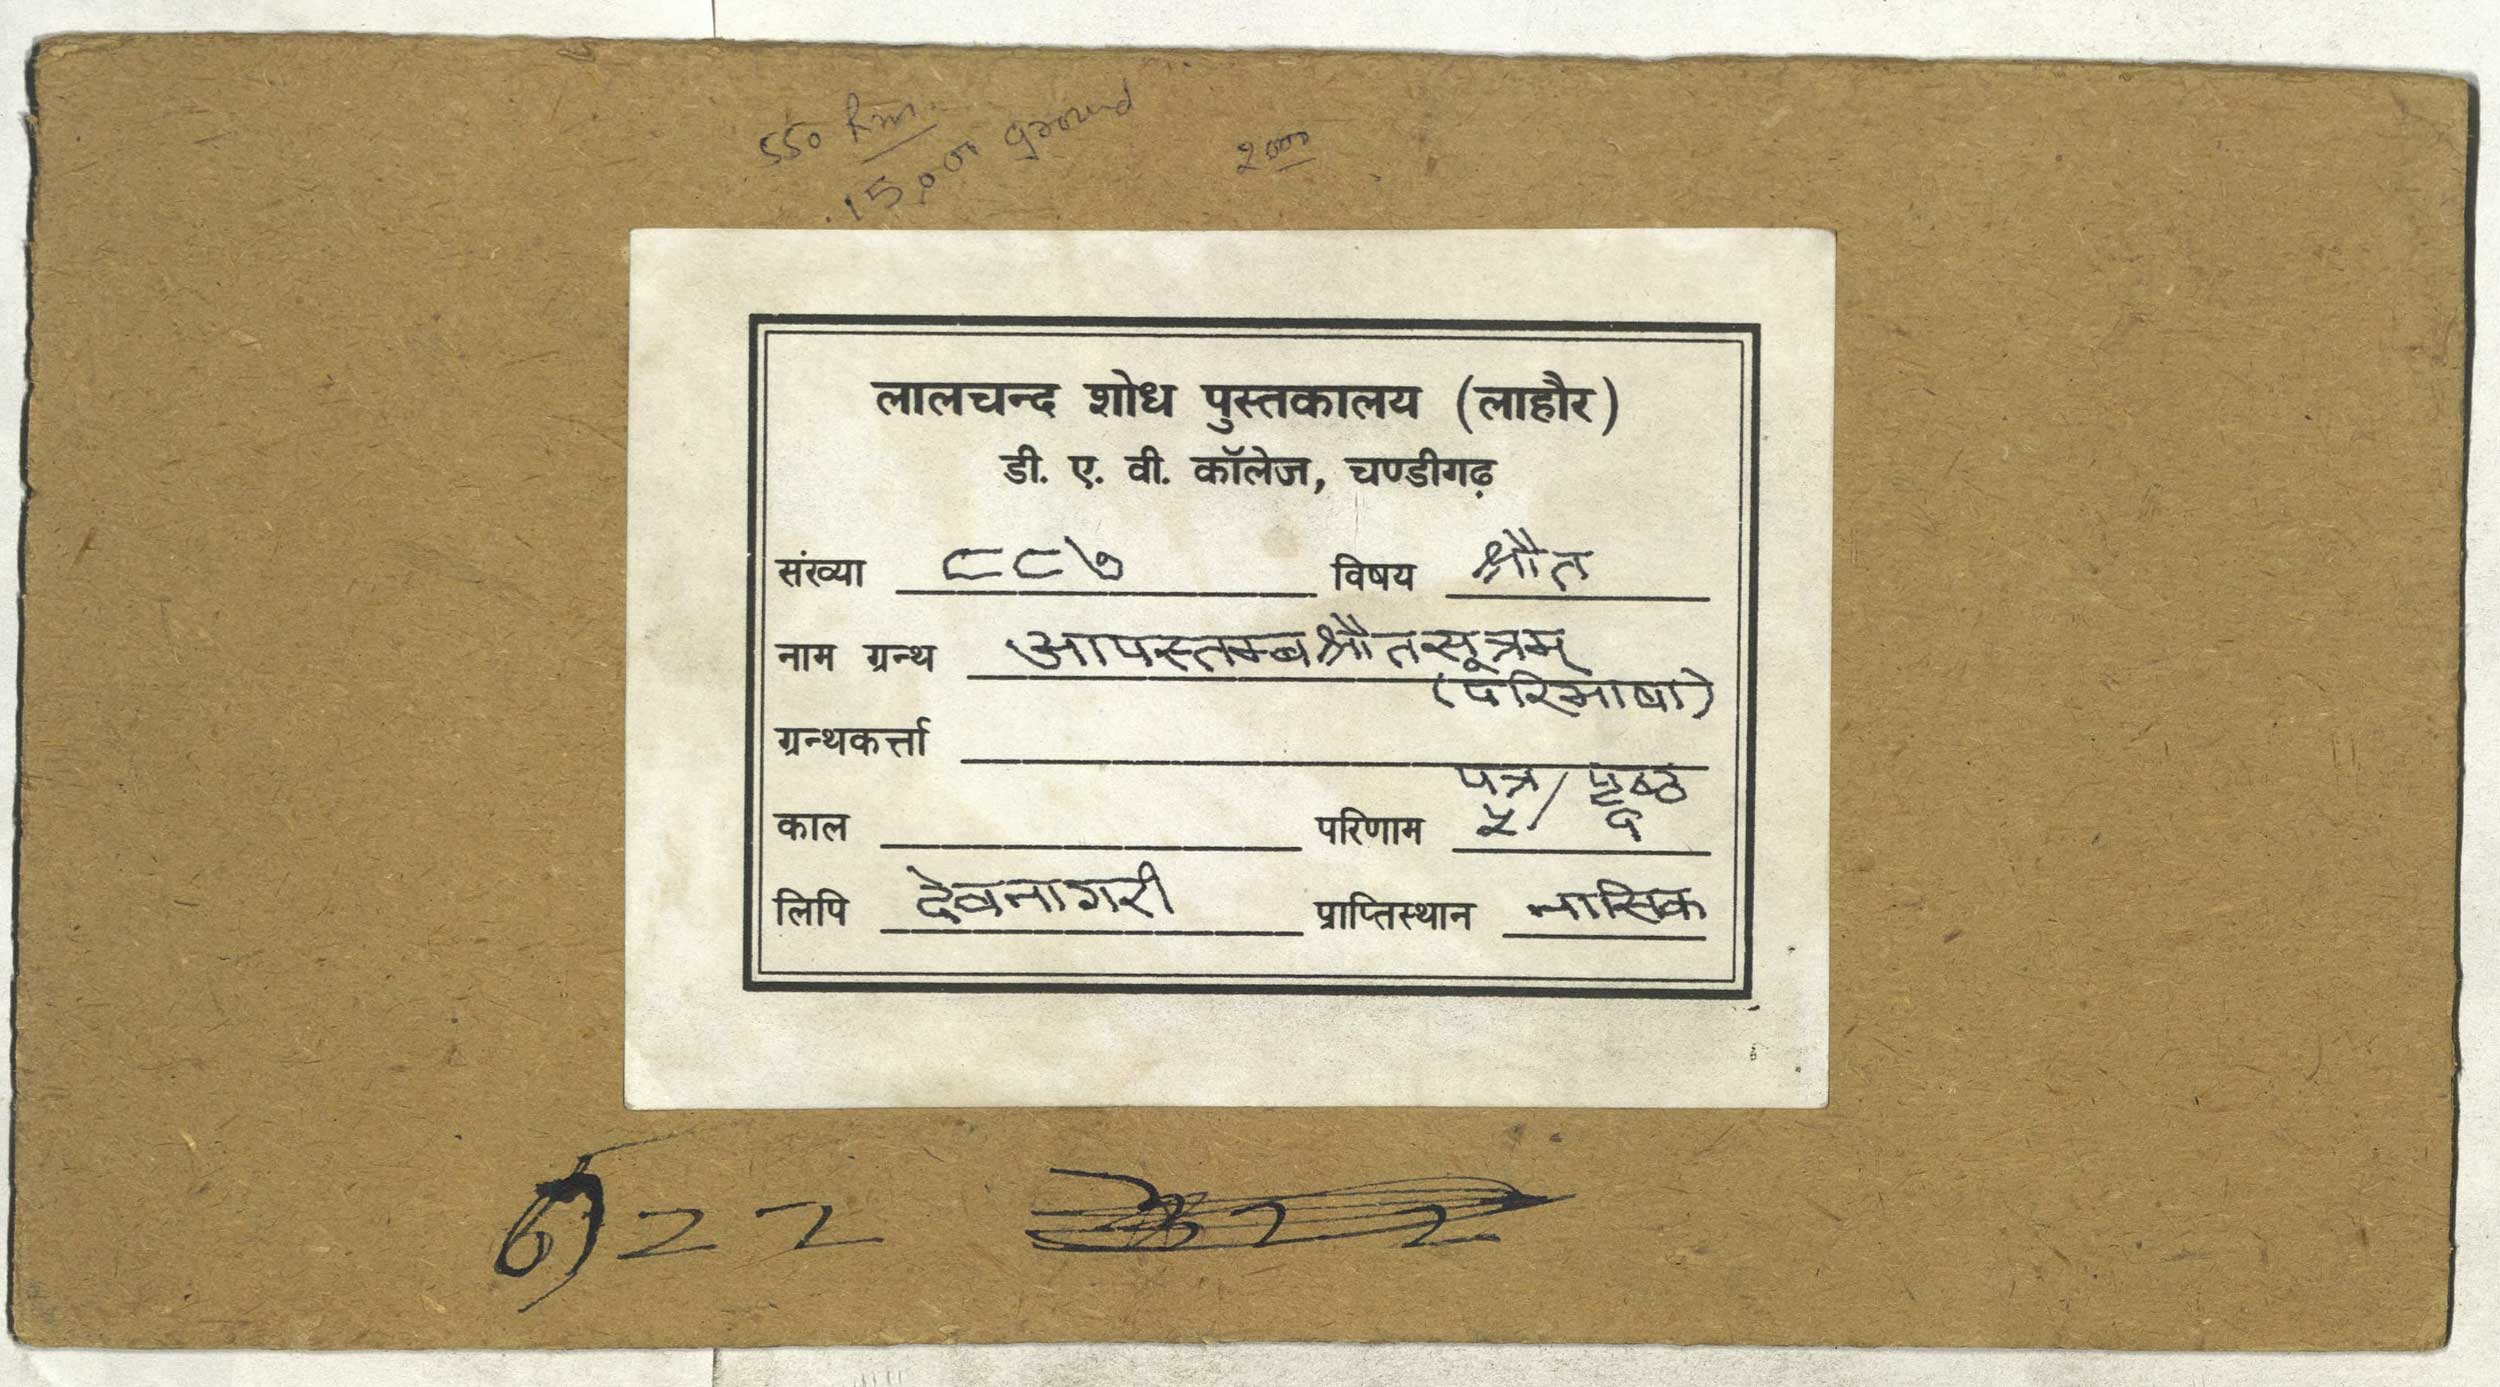 550 km.
15,000 ground
2000
लालचन्द शोध पुस्तकालय (लाहौर)
डी. ए. वी. कॉलेज, चण्डीगढ़
संख्या ८८७ विषय श्रौत
नाम ग्रन्थ आपस्तम्बश्रौतसूत्रम्
(परिभाषा)
ग्रन्थकर्त्ता
पत्र / पृष्ठ
काल परिणाम ५/
लिपि देवनागरी प्राप्तिस्थान नासिक
22